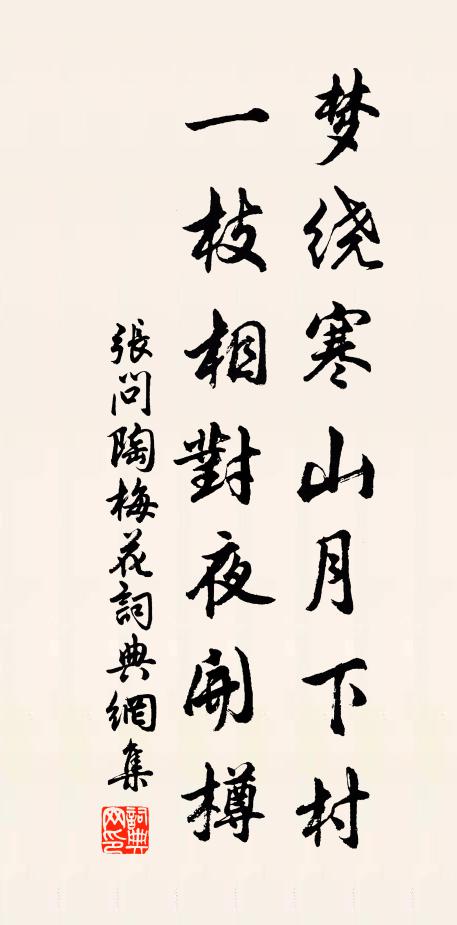 梦绕寒山月下村
一枝相對夜開樽
張問陶梅花詞典網集
詞典網印